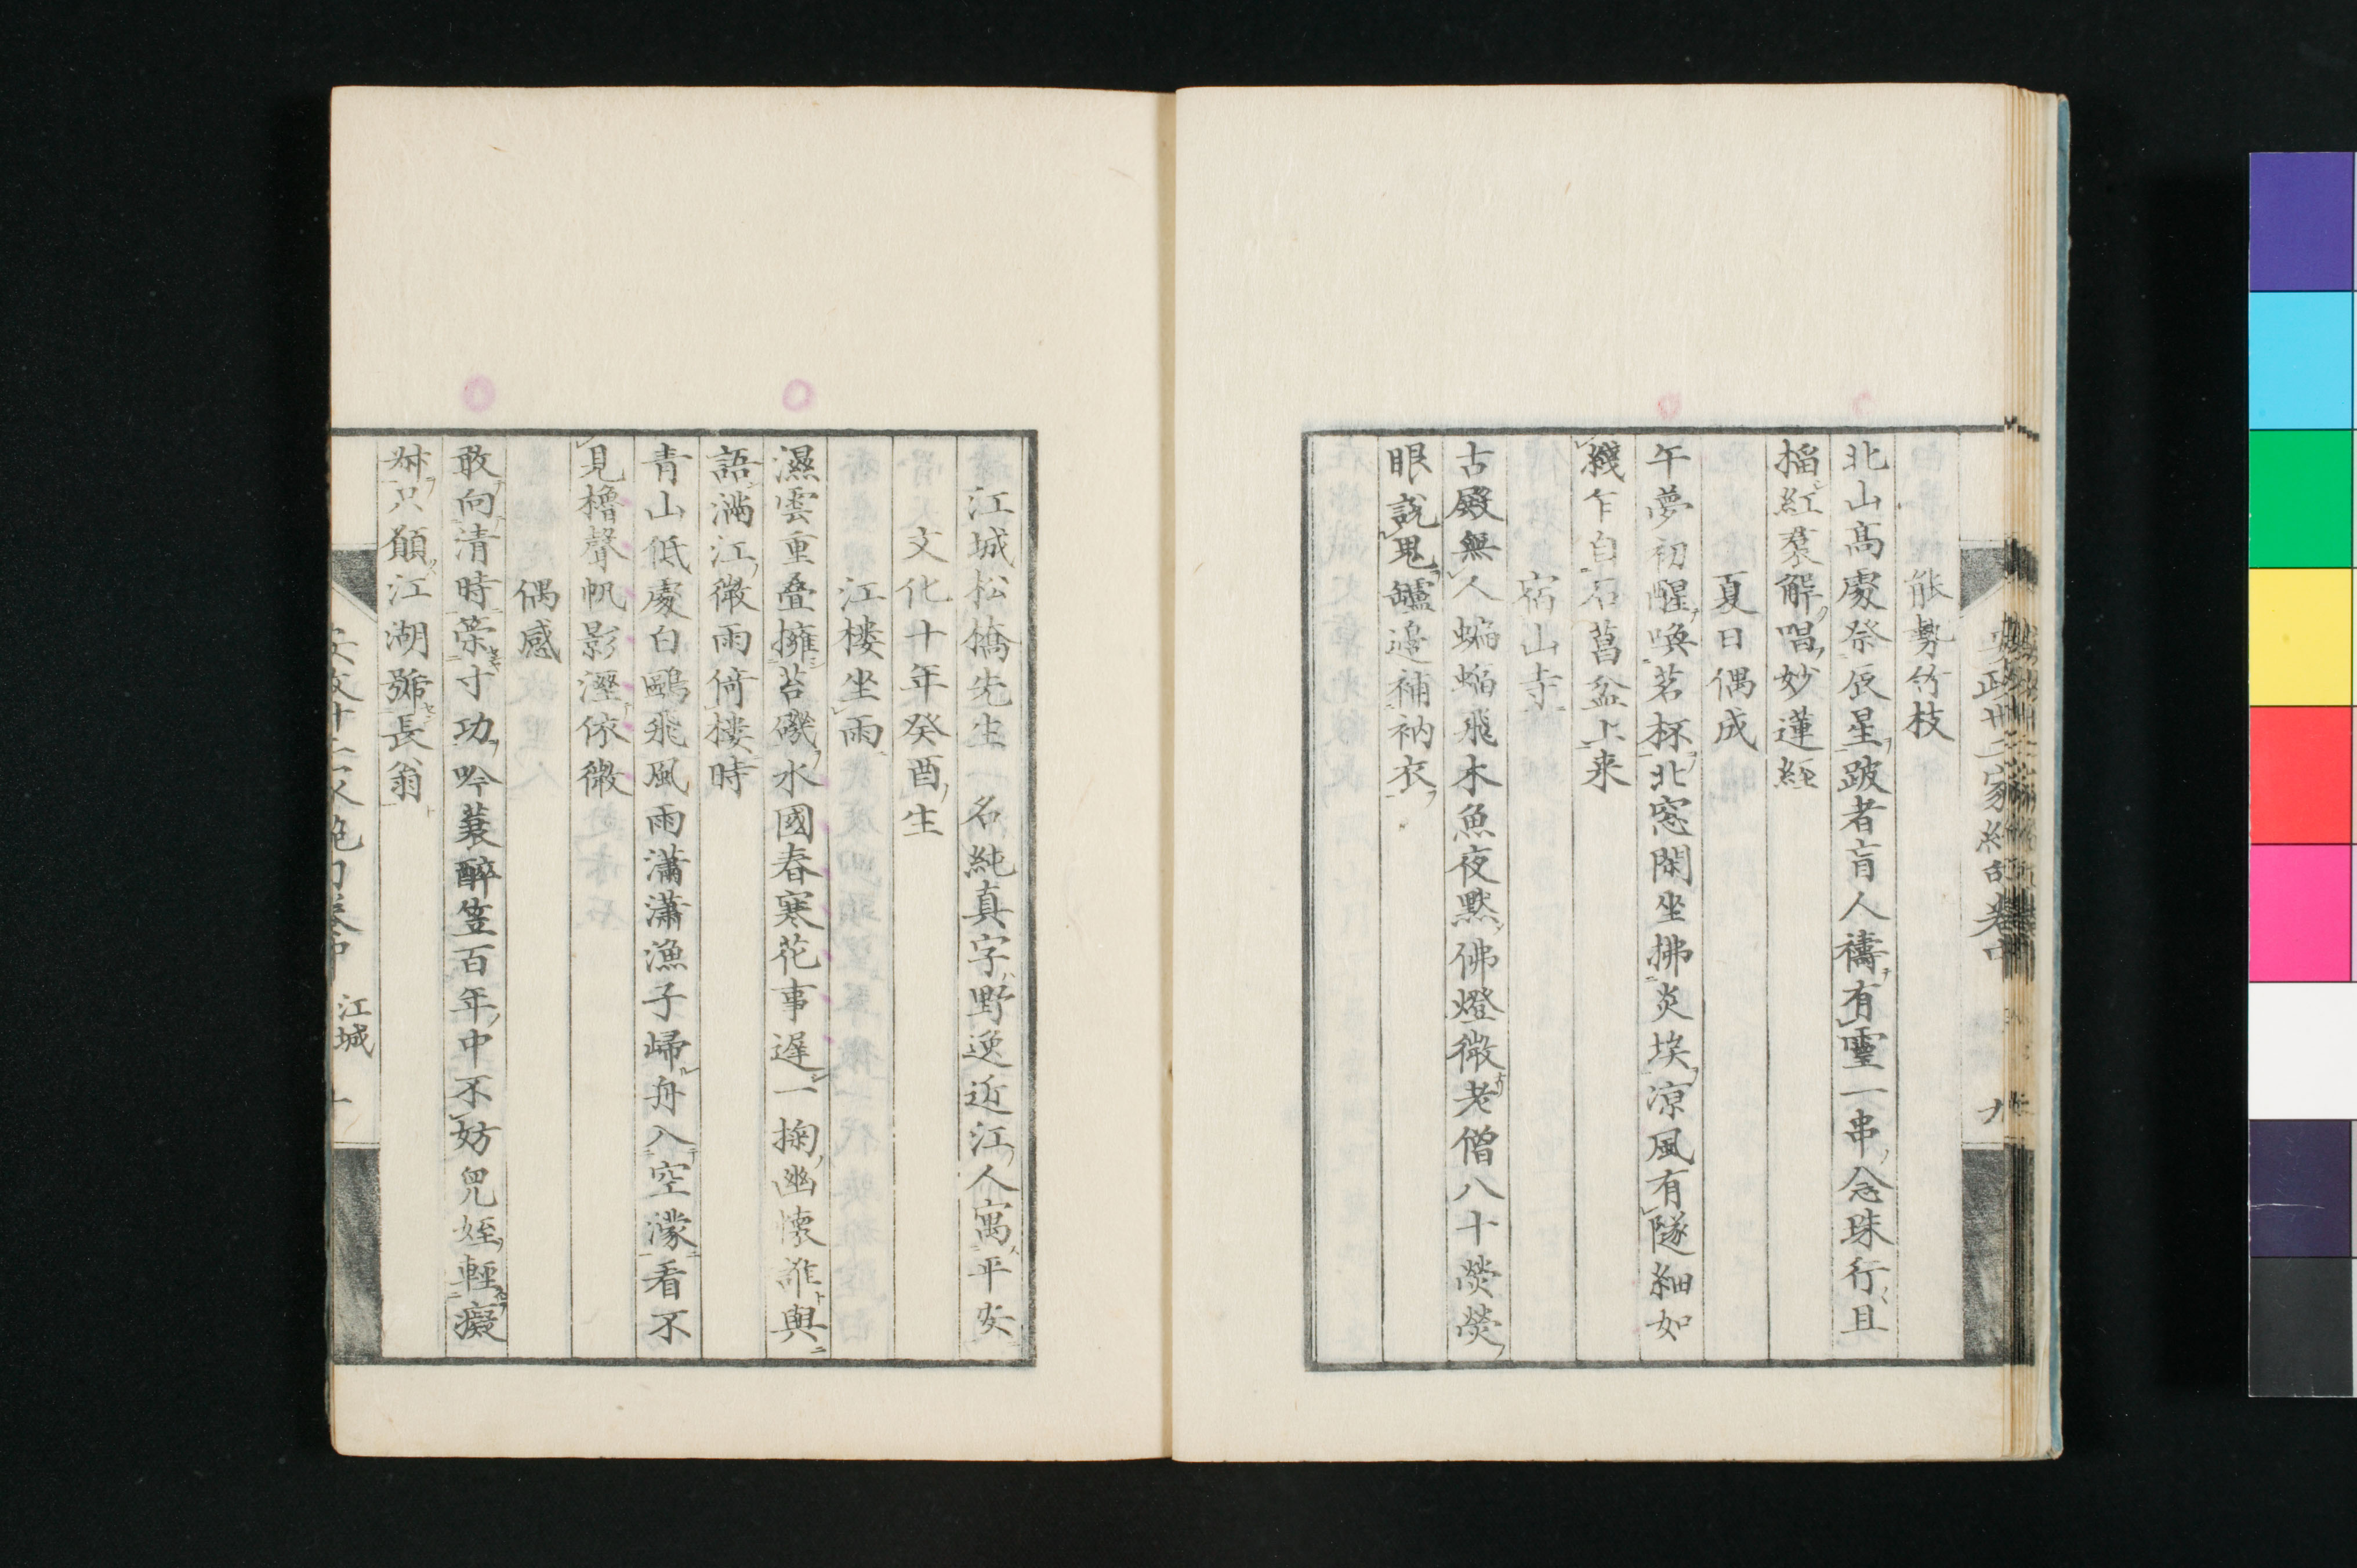 能勢竹枝
北山髙處祭辰星跛者盲人禱有靈一串念珠行且
搯紅裠解唱妙蓮經
夏日偶成
午夢初醒喚茗杯北窓閑坐拂炎埃凉風有隧細如
綫乍自石菖盆上来
宿山寺
古殿無人蝙蝠飛木魚夜黙佛燈微老僧八十熒熒
眼說鬼罏邊補衲衣
江城松嶠先生 名純真字野逸近江人寓平安
文化十年癸酉生
江樓坐雨
濕雲重叠擁苔磯水國春寒花事遅一掬幽懐誰與
語滿江微雨倚樓時
青山低處白鷗飛風雨瀟瀟漁子歸舟入空濛看不
見櫓聲帆影溼依微
偶感
敢向清時策寸功吟蓑醉笠百年中不妨兒姪輕癡
叔只願江湖號長翁
江城